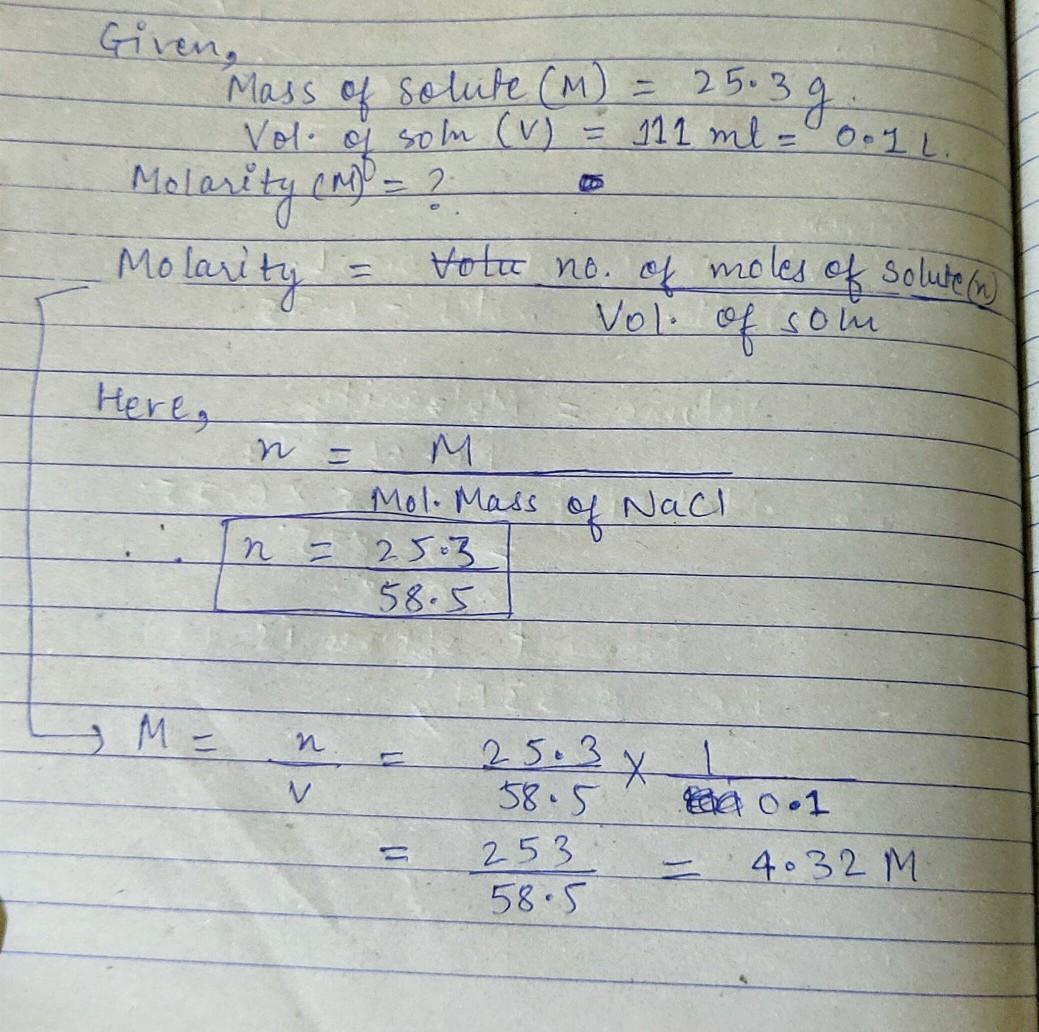 Given,
Mass of solute (M) = 25.3 g.
Vol. of soln (V) = 111 ml = 0.1 L.
Molarity (M) = ?
Molarity = no. of moles of solute (n)
Vol. of soln
Here,
n = M
Mol. Mass of NaCl
∴ n = 25.3
58.5
→ M = n = 25.3 × 1
V 58.5 0.1
= 253 = 4.32 M
58.5